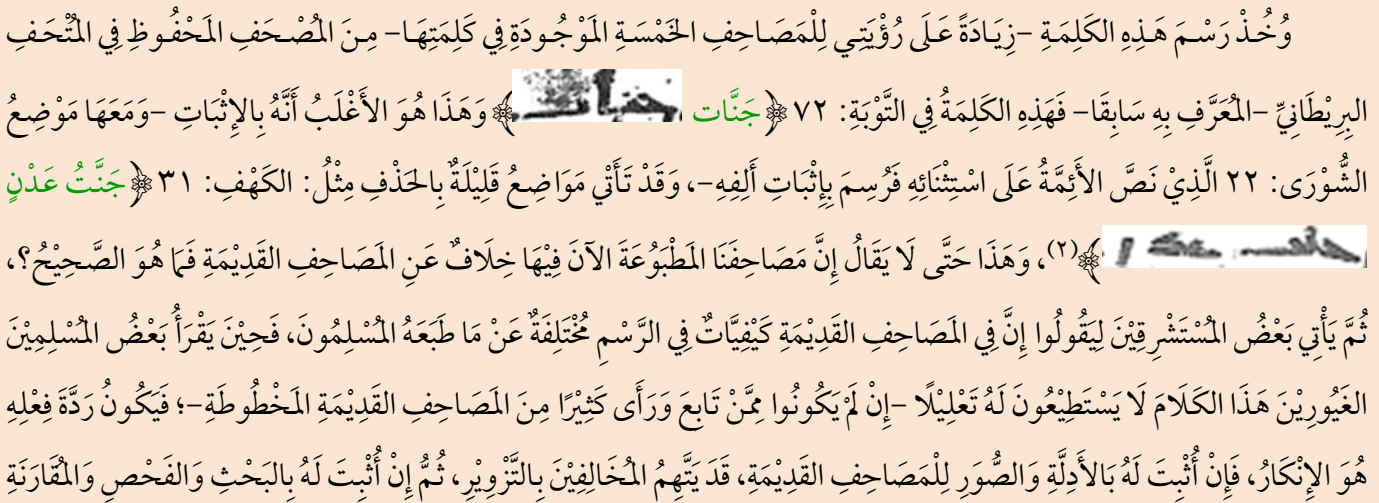 وُخُذْ رَسْمَ هَذِهِ الكَلِمَةِ –زِيَادَةً عَلَى رُؤْيَتِي لِلْمَصَاحِفِ الخَمْسَةِ المَوْجُودَةِ فِي كَلِمَتِهَا– مِنَ المُصْحَفِ المَحْفُوظِ فِي المُتْحَفِ
البِرِيْطَانِيِّ –المُعَرَّفِ بِهِ سَابِقَا– فَهَذِهِ الكَلِمَةُ فِي التَّوْبَةِ: ٧٢ ﴿جَنَّات جنات﴾ وَهَذَا هُوَ الأَغْلَبُ أَنَّهُ بِالإِثْبَاتِ –وَمَعَهَا مَوْضِعُ
الشُّوْرَى: ٢٢ الَّذِيْ نَصَّ الأَئِمَّةُ عَلَى اسْتِثْنَائِهِ فَرُسِمَ بِإِثْبَاتِ أَلِفِهِ–، وَقَدْ تَأَتِي مَوَاضِعُ قَلِيْلَةٌ بِالحَذْفِ مِثْلُ: الكَهْفِ: ٣١ ﴿جَنَّتُ عَدْنٍ
﴾(٢)، وَهَذَا حَتَّى لَا يَقَالُ إِنَّ مَصَاحِفَنَا المَطْبُوعَةَ الآنَ فِيْهَا خِلَافٌ عَنِ المَصَاحِفِ القَدِيْمَةِ فَمَا هُوَ الصَّحِيْحُ؟،
ثُمَّ يَأْتِي بَعْضُ المُسْتَشْرِقِيْنَ لِيَقُولُوا إِنَّ فِي المَصَاحِفِ القَدِيْمَةِ كَيْفِيَّاتٌ فِي الرَّسْمِ مُخْتَلِفَةٌ عَنْ مَا طَبَعَهُ المُسْلِمُونَ، فَحِيْنَ يَقْرَأُ بَعْضُ المُسْلِمِيْنَ
الغَيُورِيْنَ هَذَا الكَلَامَ لَا يَسْتَطِيْعُونَ لَهُ تَعْلِيْلًا –إِنْ لَمْ يَكُونُوا مِمَّنْ تَابِعَ وَرَأَى كَثِيْرًا مِنَ المَصَاحِفِ القَدِيْمَةِ المَخْطُوطَةِ–؛ فَيَكُونُ رَدَّةَ فِعْلِهِ
هُوَ الإِنْكَارُ، فَإِنْ أُثْبِتَ لَهُ بَالأَدِلَّةِ وَالصُّوَرِ لِلْمَصَاحِفِ القَدِيْمَةِ، قَدَ يَتَّهِمُ المُخَالِفِيْنَ بِالتَّزْوِيْرِ، ثُمَّ إِنْ أُثْبِتَ لَهُ بِالبَحْثِ وَالفَحْصِ وَالمُقَارَنَةِ